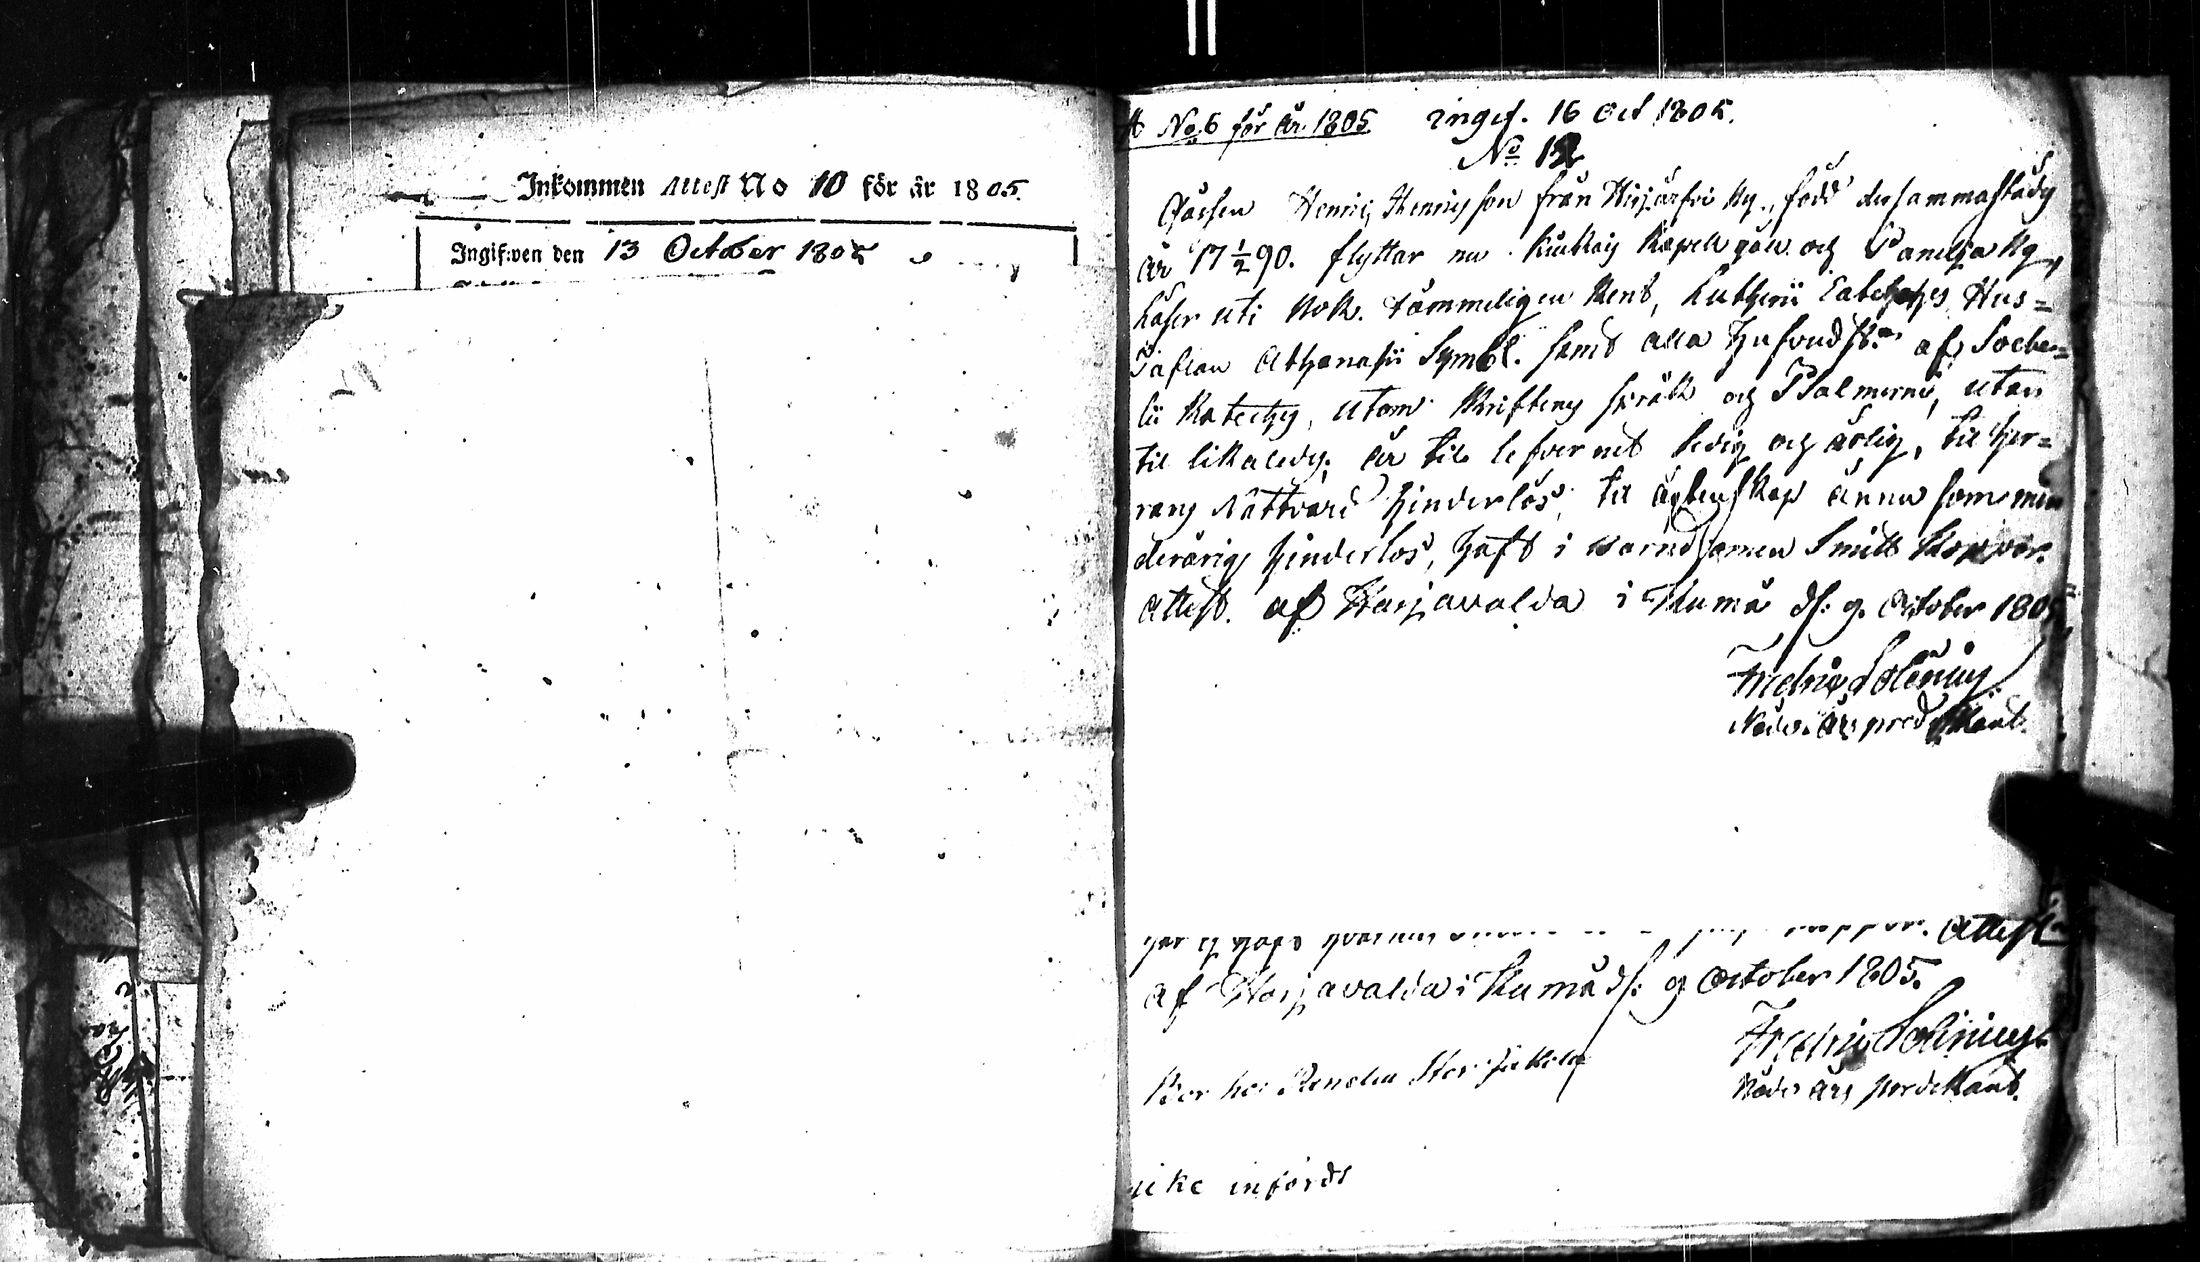 Inkommen Attest No 10 för år 1805.
Ingifven den 13 October 1805
No 6 för år 1805 ingif. 16 Oct 1805.
No 12
Gossen Henric Henricsson från Hirjärfvi By, född dersammastädes
år 17 1/2 90. flyttar nu Kapell och Panelja By,
läser uti Bok. tämmeligen Rent, Lutheri Cateches Hus=
Taflan Athanasii Symbol. samt alla hufvudst. af Svebe=
lii Kateches, utom Skriftens språk och Psalmerne, utan
til likaledes. är til lefvernet ledig och ärlig, til Her=
rans Nattvard hinderlös, til ägtenskap ännu som min
derårig hinderlös, haft i barndomen Smitt Koppor.
Attest. af Harjavalda i Kumå d: 9 October 1805
Fredric Polénius.
Nåde års predikant.
Attest
af Harjavalda i Kumå d: 9 October 1805.
Fredric Polénius
Nåde års predikant.
Bor hos
icke införde